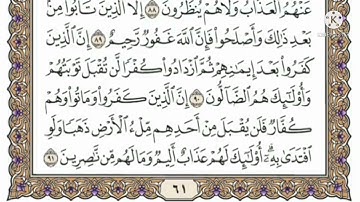 عَنْهُمُ ٱلْعَذَابُ وَلَا هُمْ يُنظَرُونَ ٨٨ إِلَّا ٱلَّذِينَ تَابُوا۟ مِنۢ
بَعْدِ ذَٰلِكَ وَأَصْلَحُوا۟ فَإِنَّ ٱللَّهَ غَفُورٌ رَّحِيمٌ ٨٩ إِنَّ ٱلَّذِينَ
كَفَرُوا۟ بَعْدَ إِيمَـٰنِهِمْ ثُمَّ ٱزْدَادُوا۟ كُفْرًا لَّن تُقْبَلَ تَوْبَتُهُمْ
وَأُو۟لَـٰٓئِكَ هُمُ ٱلضَّآلُّونَ ٩٠ إِنَّ ٱلَّذِينَ كَفَرُوا۟ وَمَاتُوا۟ وَهُمْ
كُفَّارٌ فَلَن يُقْبَلَ مِنْ أَحَدِهِم مِّلْءُ ٱلْأَرْضِ ذَهَبًا وَلَوِ
ٱفْتَدَىٰ بِهِۦٓ أُو۟لَـٰٓئِكَ لَهُمْ عَذَابٌ أَلِيمٌ وَمَا لَهُم مِّن نَّـٰصِرِينَ ٩١
٦١